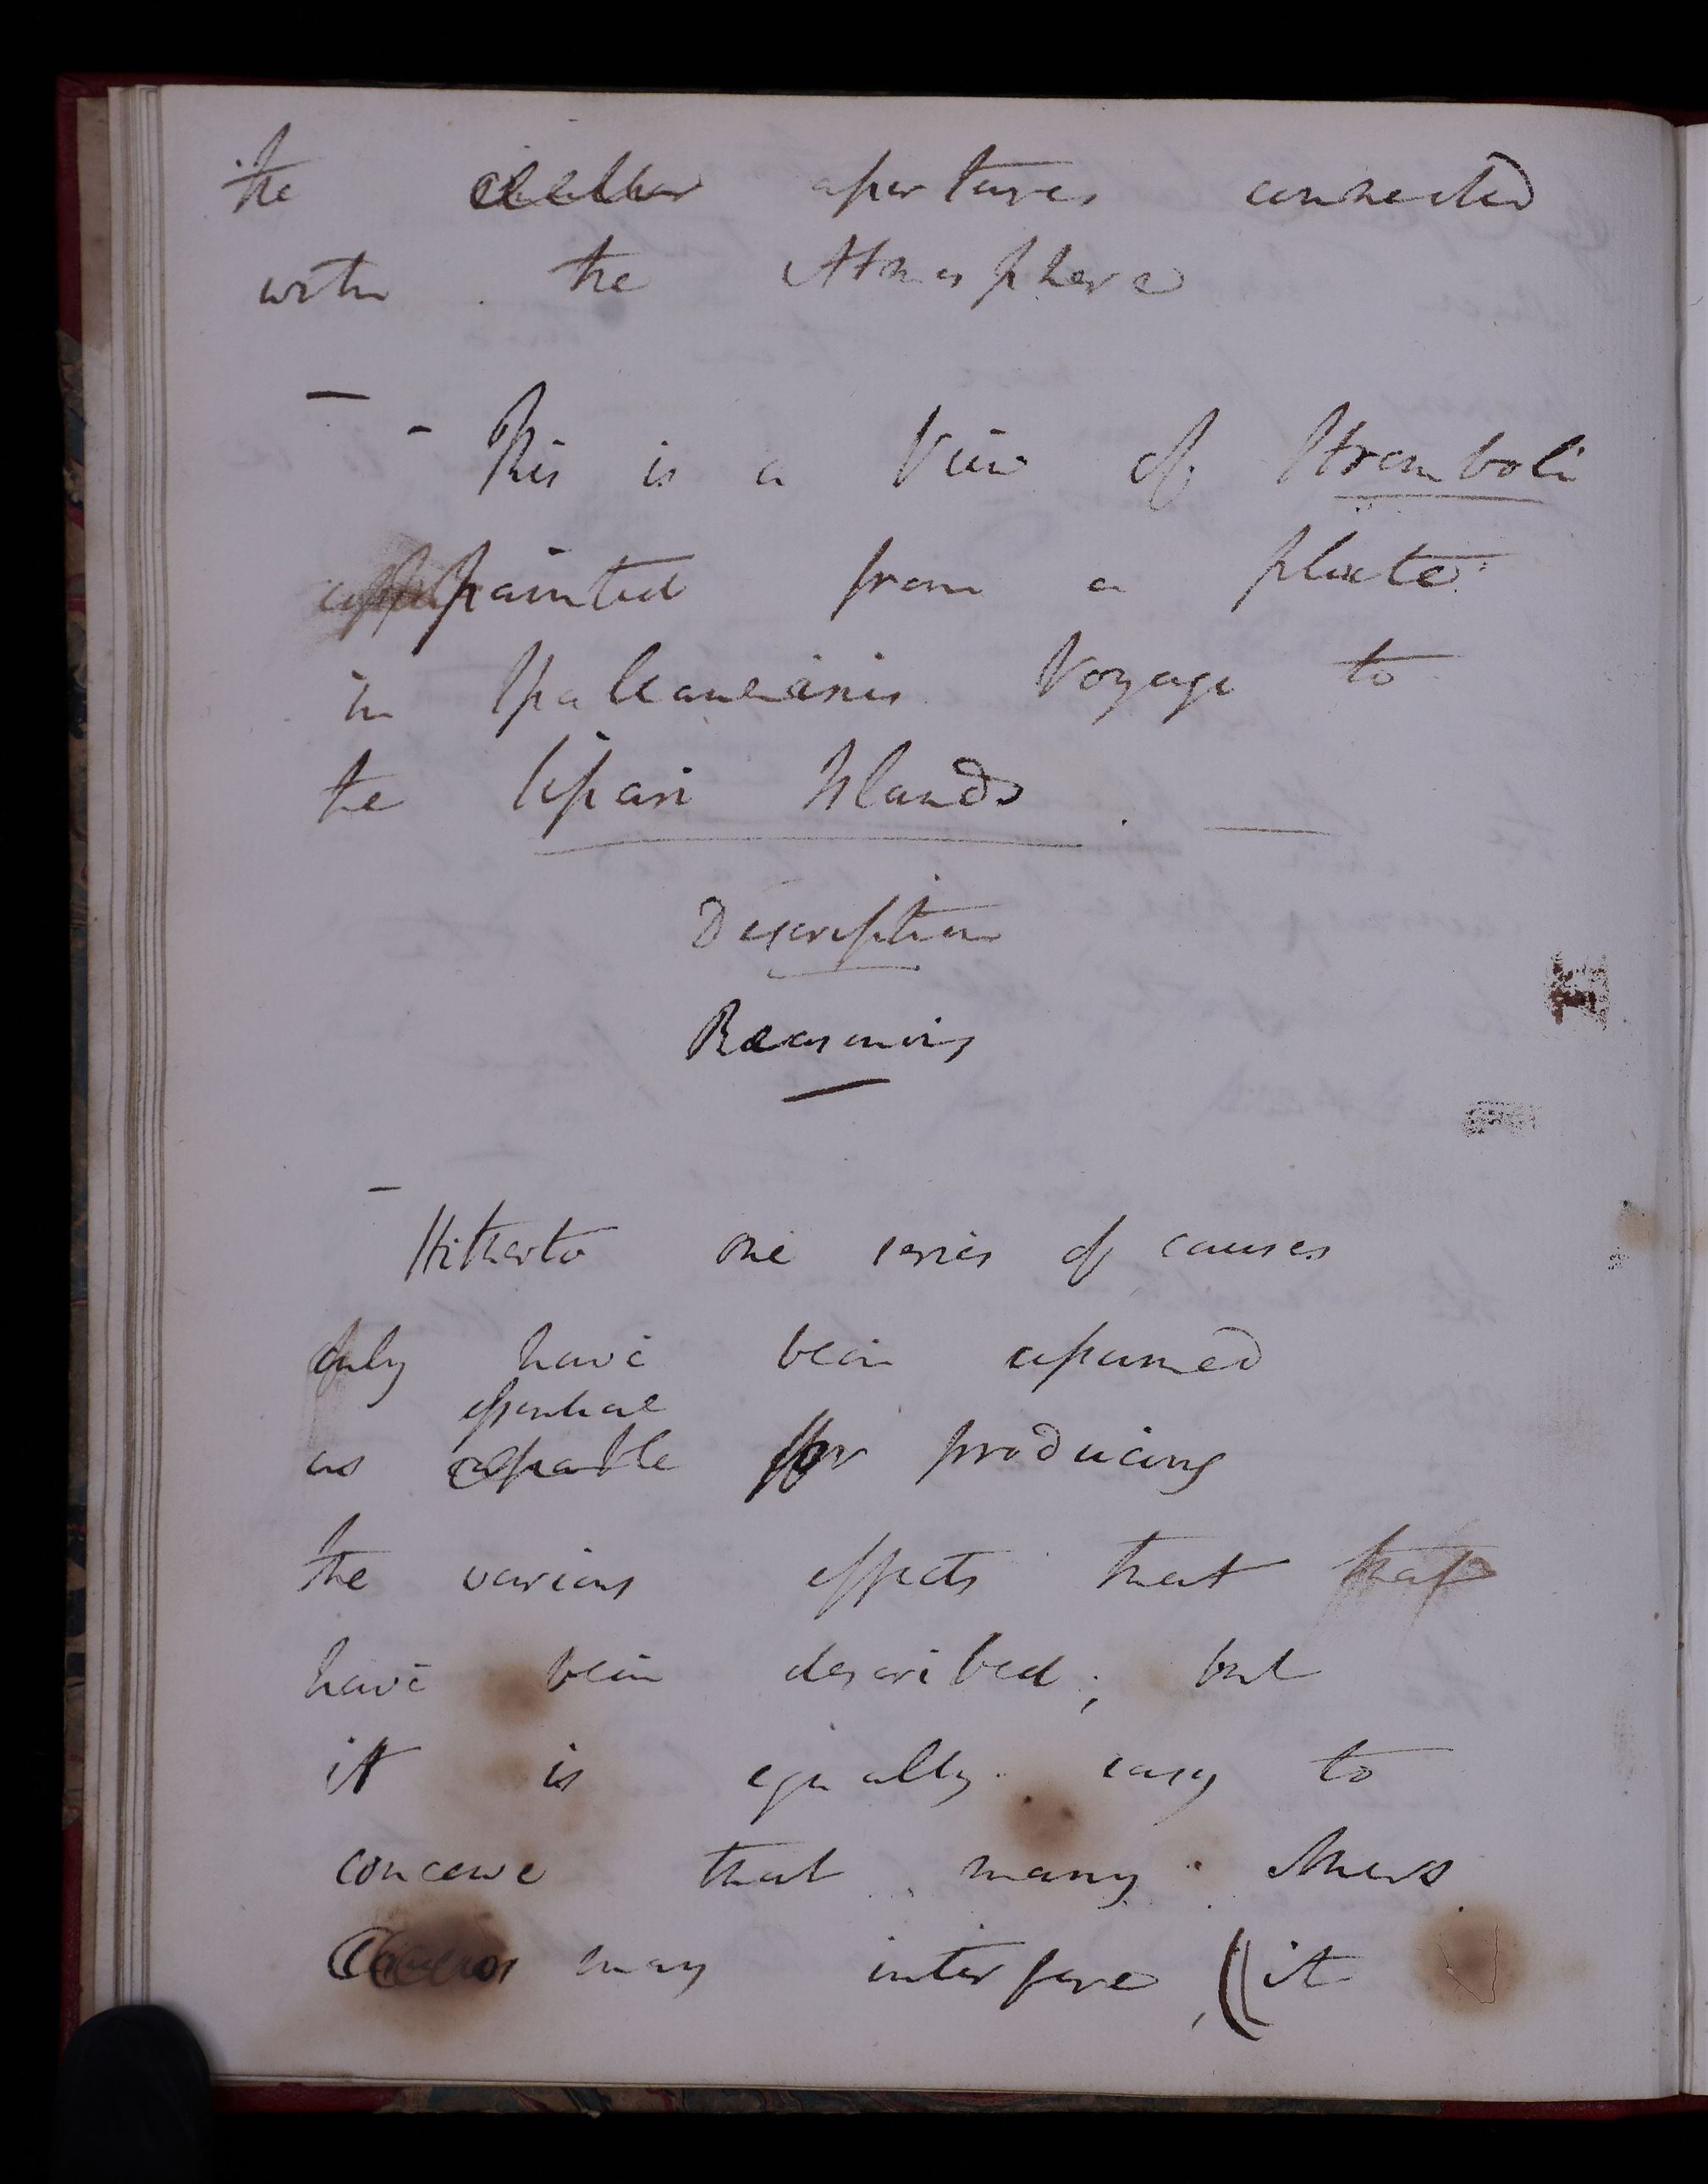 the apertures connected
with the Atmosphere
— - This is a View of Stromboli
painted from a plate
in Spallanzanis Voyage to
the Lipari Islands. —
Description
Reasoning
— Hitherto one series of causes
only have been assumed
essential
as capable for producing
the various effects that that
have been described; but
it is equally easy to
conceive that many others
may interfere, ((it